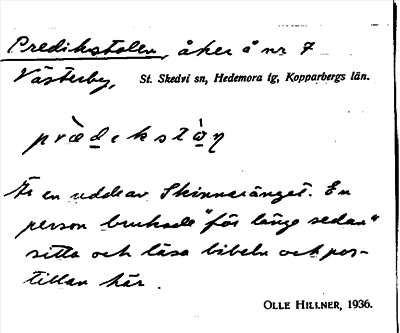 Predikstolen, åker å nr 7
Västerby, St. Skedvi sn, Hedemora tg, Kopparbergs län.
Är en udde av Skinnaränget. En
person brukade "för länge sedan"
sitta och läsa bibeln och pos-
tillan här.
OLLE HILLNER, 1936.